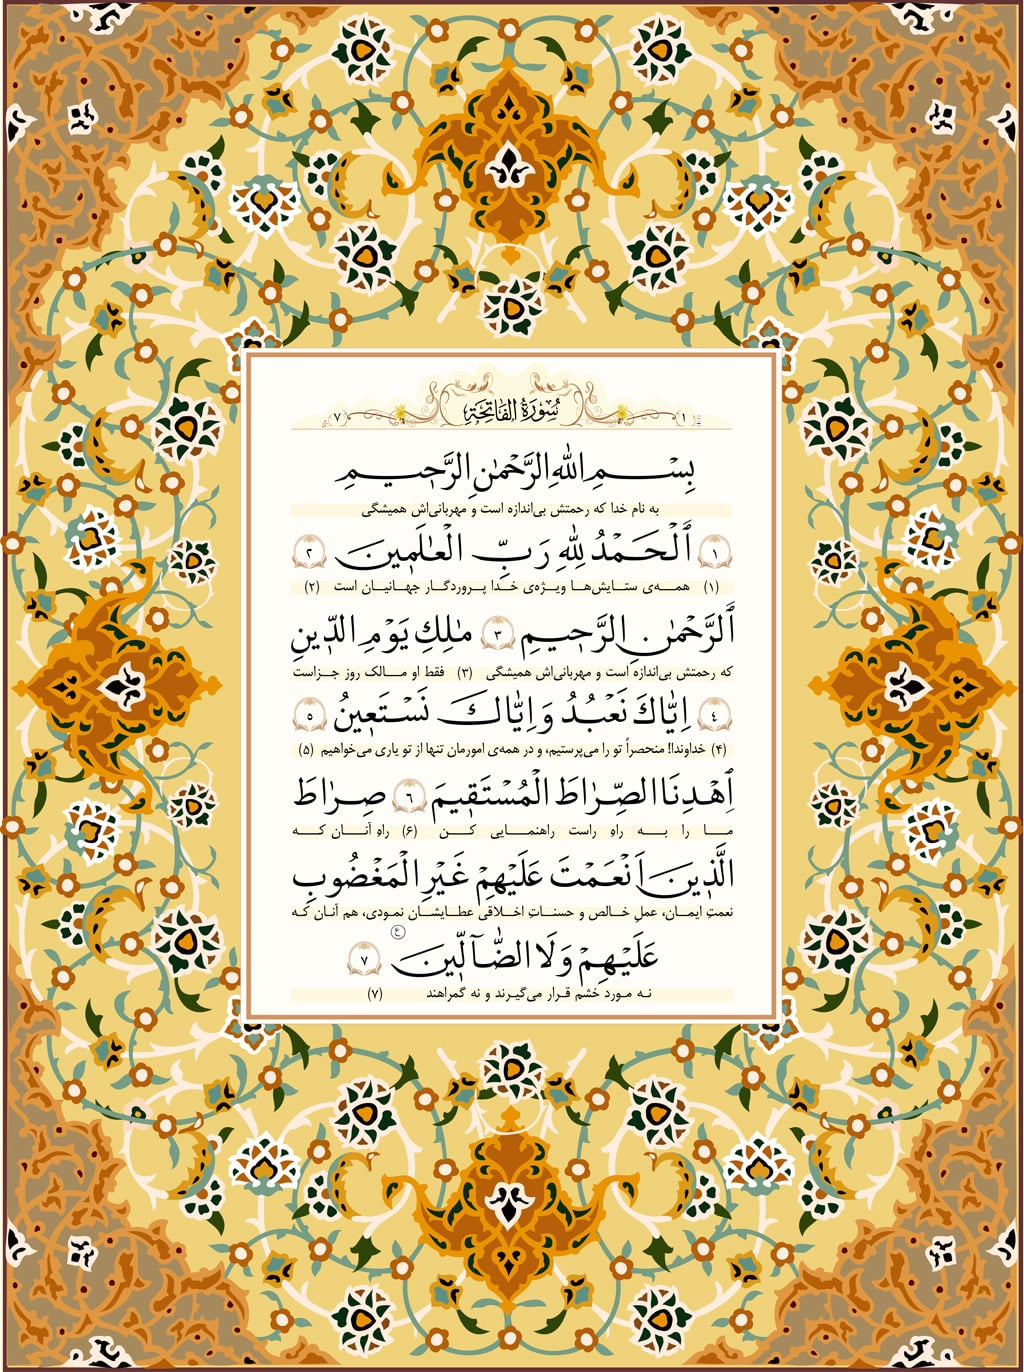 ١ سُورَةُ الفَاتِحَةِ ٧
بِسْمِ اللّٰهِ الرَّحْمٰنِ الرَّحیمِ
به نام خدا که رحمتش بی‌اندازه است و مهربانی‌اش همیشگی
١ اَلْحَمْدُ لِلّٰهِ رَبِّ الْعٰالَمینَ ٢
(۱) همه‌ی ستایش‌ها ویژه‌ی خدا پروردگار جهانیان است (۲)
اَلرَّحْمٰنِ الرَّحیمِ ٣ مٰلِكِ يَوْمِ الدّینِ
که رحمتش بی‌اندازه است و مهربانی‌اش همیشگی (۳) فقط او مالک روز جزاست
٤ اِيّٰاكَ نَعْبُدُ وَ اِيّٰاكَ نَسْتَعینُ ٥
(۴) خداوندا! منحصراً تو را می‌پرستیم، و در همه‌ی امورمان تنها از تو یاری می‌خواهیم (۵)
اِهْدِنَا الصِّرٰاطَ الْمُسْتَقیمَ ٦ صِرٰاطَ
ما را به راهِ راست راهنمایی کن (۶) راهِ آنان که
الَّذینَ اَنْعَمْتَ عَلَيْهِمْ غَيْرِ الْمَغْضُوبِ
نعمتِ ایمان، عملِ خالص و حسناتِ اخلاقی عطایشان نمودی، هم آنان که
عَلَيْهِمْ وَلَا الضّٰٓالّینَ ع ٧
نه مورد خشم قرار می‌گیرند و نه گمراهند (۷)